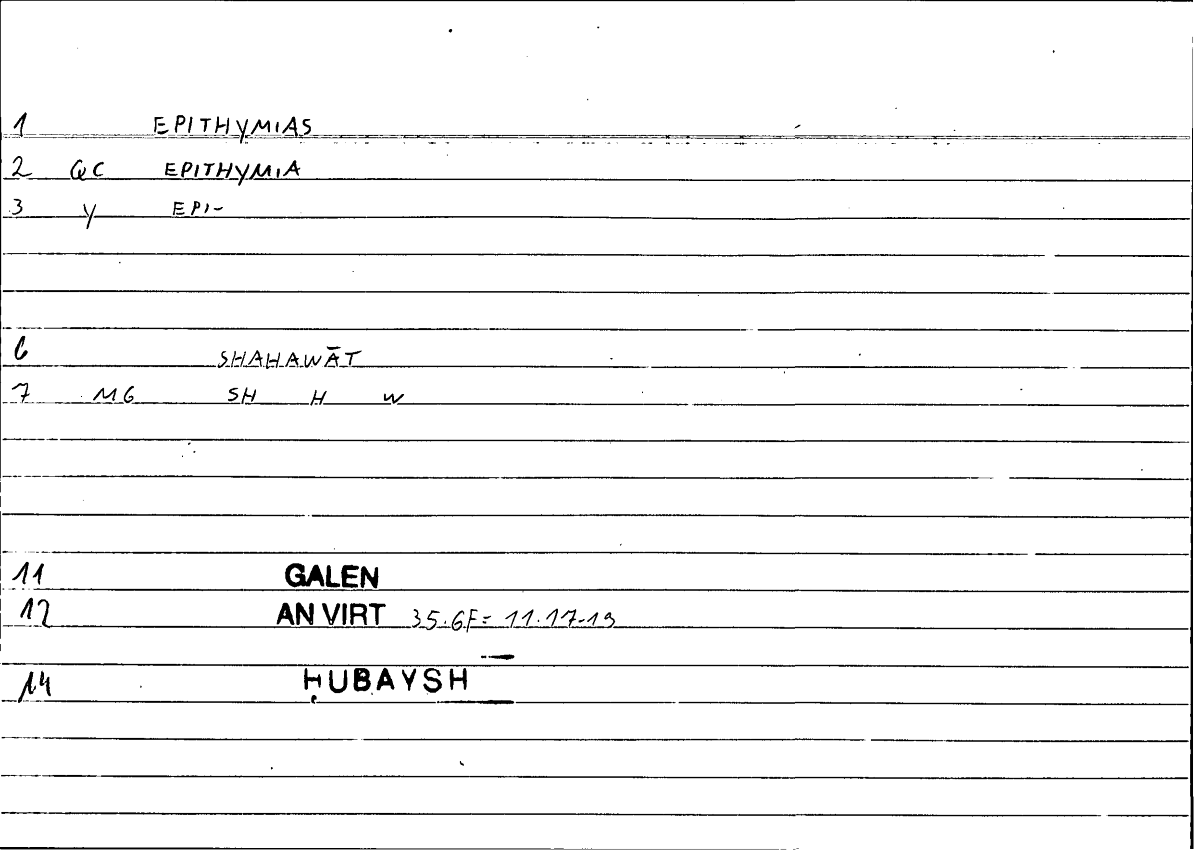 1 EPITHYMIAS
2 QC EPITHYMIA
3 Y EPI-
6 SHAHAWĀT
7 MG SH H W
11 GALEN
12 AN VIRT 35.6F= 11.17-19
14 ḤUBAYSH